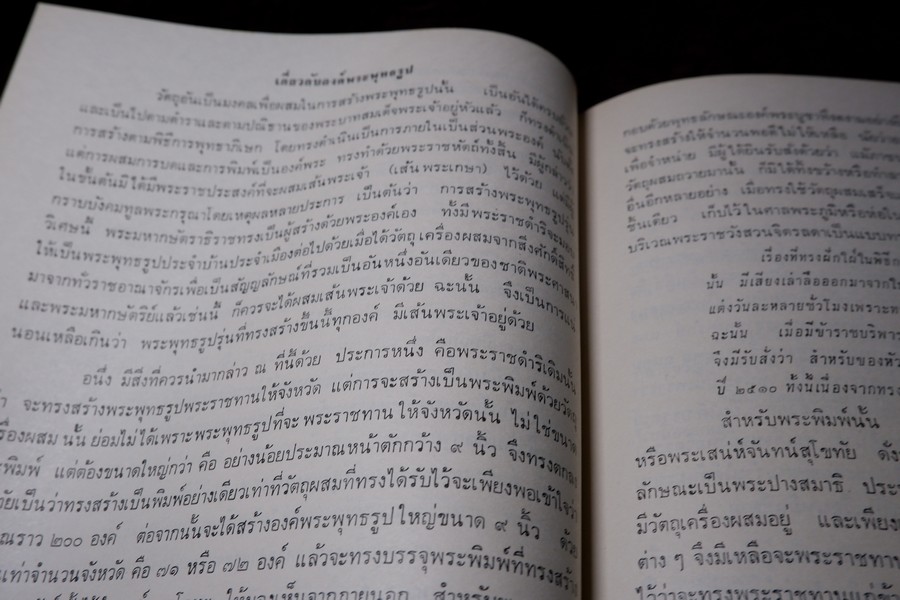 เกี่ยวกับองค์พระพุทธรูป
วัตถุอันเป็นมงคลเพื่อผสมในการสร้างพระพุทธรูปนั้น เป็นอันได้ครบถ้วน
และเป็นไปตามตำราและตามปณิธานของพระบาทสมเด็จพระเจ้าอยู่หัวแล้ว ก็ทรง
การสร้างตามพิธีการพุทธาภิเษก โดยทรงดำเนินเป็นการภายในเป็นส่วนพระองค์
แต่การผสมการบดและการพิมพ์เป็นองค์พระ ทรงทำด้วยพระราชหัตถ์ทั้งสิ้น
ในขั้นต้นมิได้มีพระราชประสงค์ที่จะผสมเส้นพระเจ้า (เส้นพระเกษา) ไว้ด้วย
กราบบังคมทูลพระกรุณาโดยเหตุผลหลายประการ เป็นต้นว่า การสร้างพระพุทธรูป
วิเศษนี้ พระมหากษัตราธิราชทรงเป็นผู้สร้างด้วยพระองค์เอง ทั้งมีพระราชดำริจะ
ให้เป็นพระพุทธรูปประจำบ้านประจำเมืองต่อไปด้วยเมื่อได้วัตถุเครื่องผสมจากสิ่งศักดิ์สิทธิ์
มาจากทั่วราชอาณาจักรเพื่อเป็นสัญญลักษณ์ที่รวมเป็นอันหนึ่งอันเดียวของชาติพระศาสนา
และพระมหากษัตริย์แล้วเช่นนี้ ก็ควรจะได้ผสมเส้นพระเจ้าด้วย ฉะนั้น จึงเป็นการแน่
นอนเหลือเกินว่า พระพุทธรูปรุ่นที่ทรงสร้างขึ้นนี้ทุกองค์ มีเส้นพระเจ้าอยู่ด้วย
อนึ่ง มีสิ่งที่ควรนำมากล่าว ณ ที่นี้ด้วย ประการหนึ่ง คือพระราชดำริเดิมนั้น
จะทรงสร้างพระพุทธรูปพระราชทานให้จังหวัด แต่การจะสร้างเป็นพระพิมพ์ด้วยวัตถุ
เครื่องผสมนั้นย่อมไม่ได้เพราะพระพุทธรูปที่จะพระราชทานให้จังหวัดนั้น ไม่ใช่ขนาด
พระพิมพ์ แต่ต้องขนาดใหญ่กว่า คือ อย่างน้อยประมาณหน้าตักกว้าง ๙ นิ้ว จึงทรงตกลง
เป็นว่าทรงสร้างเป็นพิมพ์อย่างเดียวเท่าที่วัตถุผสมที่ทรงได้รับไว้จะเพียงพอเข้าใจว่า
ราว ๒๐๐ องค์ ต่อจากนั้นจะได้สร้างองค์พระพุทธรูปใหญ่ขนาด ๙ นิ้ว ด้วย
เท่าจำนวนจังหวัด คือ ๗๑ หรือ ๗๒ องค์ แล้วจะทรงบรรจุพระพิมพ์ที่ทรงสร้าง
ให้มองเห็นจากภายนอก สำหรับ
กอบด้วยพุทธลักษณะองค์พระบูชา
จะทรงสร้างให้จำนวนพอดีไม่ได้เหลือ
เพื่อจำหน่าย มีผู้ได้ยินรับสั่งด้วยว่า
วัตถุผสมถวายมานั้น ก็มิได้ทิ้งขว้าง
อื่นอีกหลายอย่าง เมื่อทรงใช้วัตถุผสมเสร็จ
ชิ้นเดียว เก็บไว้ในศาลพระภูมิ
บริเวณพระราชวังสวนจิตรลดาเป็นแบบ
เรื่องที่ทรงฝักใฝ่ในพิธี
นั้น มีเสียงเล่าลือออกมาจาก
แต่งวันละหลายชั่วโมงเพราะ
ฉะนั้น เมื่อมีข้าราชบริพาร
จึงมีรับสั่งว่า สำหรับของหัว
ปี ๒๕๑๐ ทั้งนี้เนื่องจากทรง
สำหรับพระพิมพ์นั้น
หรือพระเสน่ห์จันทน์สุโขทัย ดัง
ลักษณะเป็นพระปางสมาธิ
มีวัตถุเครื่องผสมอยู่ และเพียง
ต่าง ๆ จึงมีเหลือจะพระราชทาน
ไว้ว่าจะทรงพระราชทานแก่